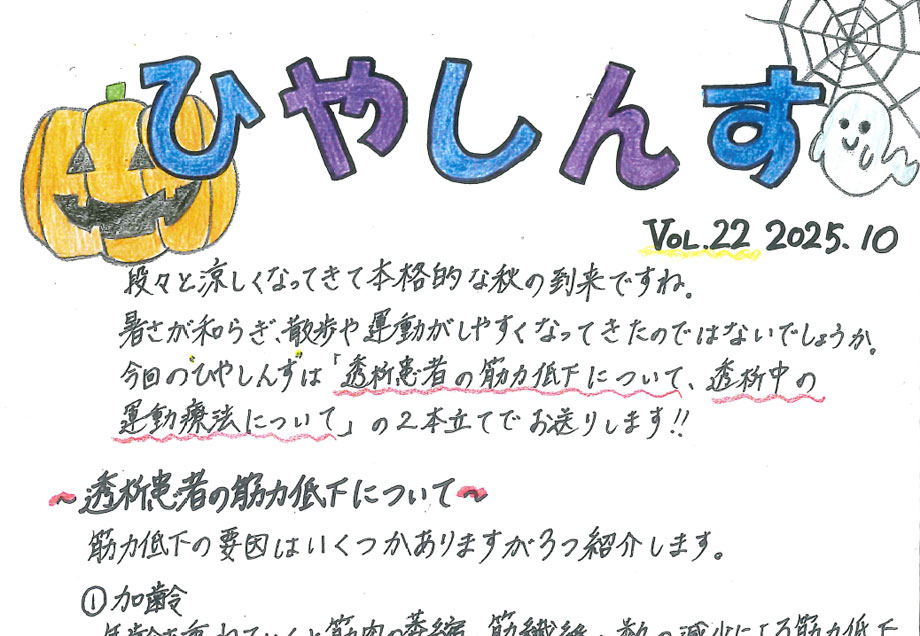 ひやしんす
VOL.22 2025.10
段々と涼しくなってきて本格的な秋の到来ですね。
暑さが和らぎ、散歩や運動がしやすくなってきたのではないでしょうか。
今回の"ひやしんす"は「透析患者の筋力低下について、透析中の
運動療法について」の2本立てでお送りします!!
~透析患者の筋力低下について~
筋力低下の要因はいくつかありますが3つ紹介します。
①加齢
年齢を重ねていくと筋肉の萎縮、筋繊維の数の減少による筋力低下